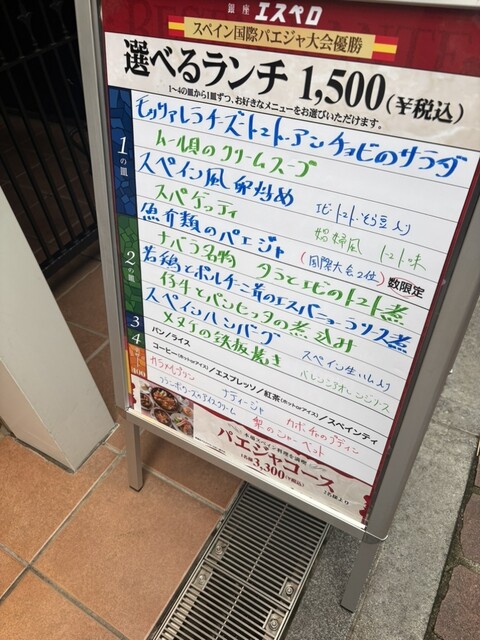 銀座 エスペロ
スペイン国際パエジャ大会優勝
選べるランチ 1,500(¥税込)
1~4の皿から1皿ずつ、お好きなメニューをお選びいただけます。
1の皿
モッツァレラチーズトマト・アンチョビのサラダ
ムール貝のクリームスープ
スペイン風卵炒め エビ・トマト・そら豆入り
スパゲッティ 娼婦風 トマト味
2の皿
魚介類のパエジャ (国際大会2位) 数限定
ナバラ名物 タラとエビのトマト煮
若鶏とポルチーニ茸のエスパニョーラソース煮
仔牛とパンセッタの煮込み
スペインハンバーグ スペイン生ハム入り
メヌケの鉄板焼き バレンシアオレンジソース
3 パン/ライス
4 コーヒー(ホットorアイス)/エスプレッソ/紅茶(ホットorアイス)/スペインティ
400
カタラナプリン ナティージャ カボチャのプディン
フランボワーズのアイスクリーム 梨のシャーベット
本場スペイン料理を満喫
パエジャコース
1名様3,300(¥税込) 2名様より